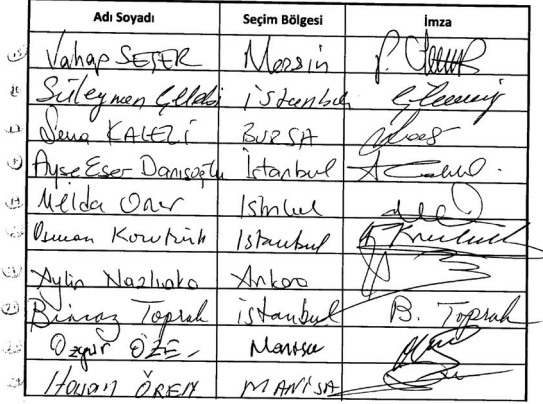 Adı Soyadı Seçim Bölgesi İmza
Vahap SEÇER Mersin
Süleyman Çelebi istanbul
Sena KALELİ BURSA
Ayşe Eser Danışoğlu İstanbul
Melda Onur Istnbul
Osman Korutürk Istanbul
Aylin Nazlıaka Ankara
Binnaz Toprak istanbul B. Toprak
Özgür ÖZEL Manisa
Hasan ÖREN MANİSA